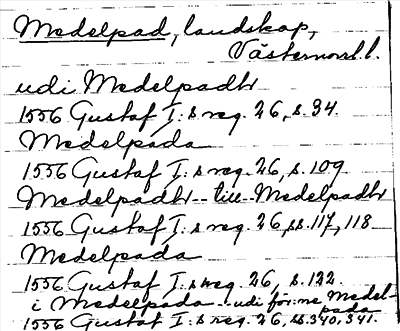 Medelpad, landskap,
Västernorrl. l.
udi Medelpadtr
1556 Gustaf I:s reg. 26, s. 34.
Medelpada
1556 Gustaf I:s reg. 26, s. 109
Medelpadtr - till Medelpadtr
1556 Gustaf I:s reg. 26, ss. 117, 118
Medelpada
1556 Gustaf I:s reg. 26, s. 122.
i Medelpada - udi för:ne Medel-
pada
1556 Gustaf I:s reg. 26, ss. 340, 341.